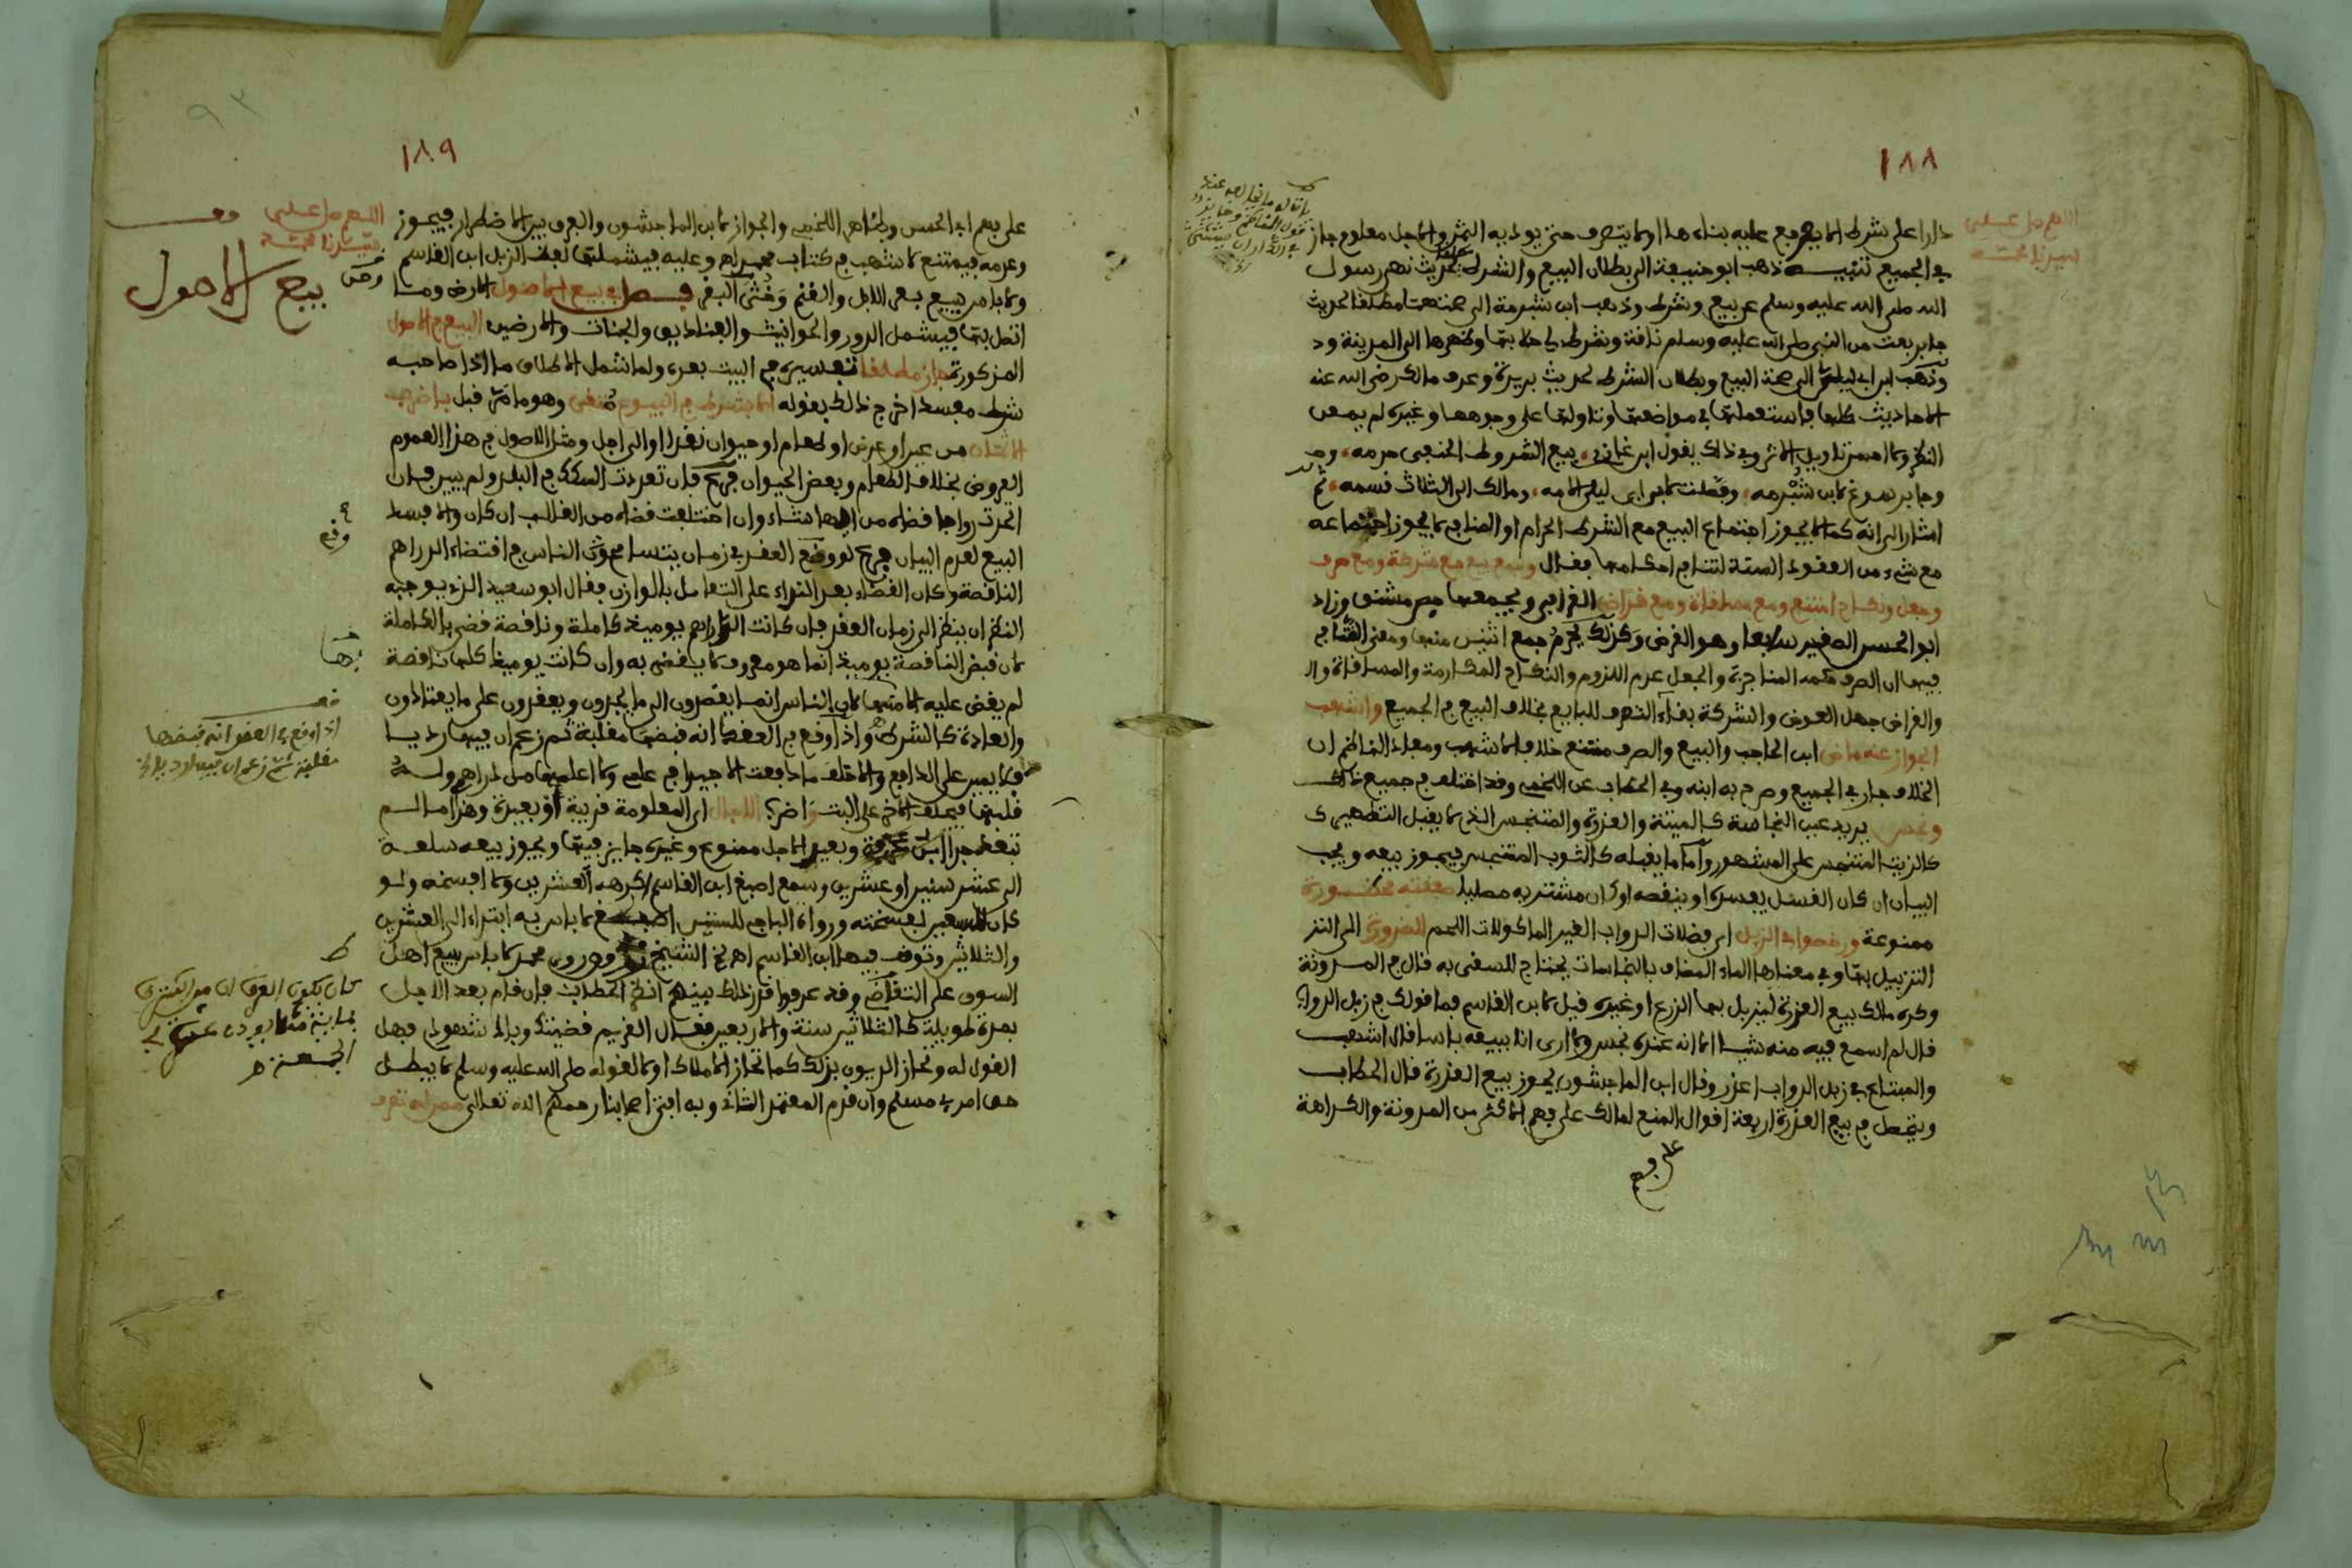 ١٨٨
اللهم صل على
سيدنا محمد
دارا على شرط الا يرجع عليه بناء هذا او لا يتصرف حتى يؤديه الثمن والاجل معلوم جاز
في الجميع تنبيه ذهب ابو حنيفة الى بطلان البيع والشرط لحديث نهى رسول
الله صلى الله عليه وسلم عن بيع وشرط وذهب ابن شبرمة الى صحتهما مطلقا لحديث
جابر بعت من النبي صلى الله عليه وسلم ناقة وشرط لي حلابها وظهرها الى المدينة و
ذهب ابن ابي ليلى الى صحة البيع وبطلان الشرط لحديث بريرة وعرف مالك رضي الله عنه
الاحاديث كلها فاستعملها في مواضعها وتاولها على وجوهها وغيره لم يمعن
النظر ولا احسن تاويل الاثر وفي ذلك يقول ابن غازي بيع الشروط الحنفي حرمه
وجابر سوغ لابن شبرمه وفصلت لابن ابي ليلى الامه ومالك الى الثلاث قسمه ثم
اشار الى انه كما لا يجوز اجتماع البيع مع الشرط الحرام او المنافي لا يجوز اجتماعه
مع شيء من العقود الستة لتنافي احكامها فقال وجمع بيع مع شركة ومع صرف
وجعل ونكاح امتنع ومع مساقاة ومع قراض القرافي ويجمعها جص مشنق وزاد
ابو الحسن الصغير سابعا وهو القرض وكذلك يحرم جمع اثنين منها ومعنى التنافي
فيها ان الصرف حكمه المناجزة والجعل عدم اللزوم والنكاح المكارمة والمساقاة وال
والقراض جهل العوض والشركة بقاء التصرف للبايع بخلاف البيع في الجميع واشهب
الجواز عنه ماض ابن الحاجب والبيع والصرف ممتنع خلافا لاشهب ومفاد الناظم ان
الخلاف جار في الجميع وصرح به ابنه وفي الحطاب عن اللخمي وقد اختلف في جميع ذلك
ونجس يريد عين النجاسة كالميتة والعذرة والمتنجس الذي لا يقبل التطهير
كالزيت المتنجس على المشهور واما ما يقبله كالثوب المتنجس فيجوز بيعه ويجب
البيان ان كان الغسل يفسده او ينقصه او كان مشتريه مصليا صفقته محظورة
ممنوعة ورخصوا في الزبل اي فضلات الدواب الغير الماكولات اللحم للضرورة الى التز
التزبيل بها وفي معناها الماء المضاف بالنجاسات يحتاج للسقي به قال في المدونة
وكره مالك بيع العذرة ليزبل بها الزرع او غيره قيل لابن القاسم فما قولك في زبل الدواب
قال لم اسمع فيه منه شيا الا انه عنده نجس ولا ارى انا ببيعه باسا قال اشهب
والمبتاع في زبل الدواب اعذر وقال ابن الماجشون يجوز بيع العذرة قال الحطاب
ويتحصل في بيع العذرة اربعة اقوال المنع لمالك على فهم الاكثر من المدونة والكراهة
على فهم
١٨٩
على فهم ابي الحسن وظاهر اللخمي والجواز لابن الماجشون والفرق بين الاضطرار فيجوز
وعدمه فيمتنع لاشهب في كتاب محمد اهـ وعليه فيشملها لفظ الزبل ابن القاسم
ولا باس ببيع بعر الابل والغنم وخثى البقر فصل في بيع الاصول الارض وما
اتصل بها فيشمل الدور والحوانيت والفناديق والجنات والارضين البيع في الاصول
المذكورة جاز مطلقا تفسيره في البيت بعده ولما شمل الاطلاق ما اذا صاحبه
شرط مفسد اخرج ذلك بقوله الا بشرط في البيوع متقى وهو ما مر قبل باضرب
الاثمان من عين او عرض او طعام او حيوان نقدا او الى اجل ومثل الاصول في هذا العموم
العروض بخلاف الطعام وبعض الحيوان فرع فان تعددت السكك في البلد ولم يبين فان
اتحدت رواجا قضاه من ايها شاء وان اختلفت قضاه من الغالب ان كان والا فسد
البيع لعدم البيان فرع لو وقع العقد في زمان يتسامح فيه الناس في اقتضاء الدراهم
الناقصة وكان القضاء بعد النداء على التعامل بالوازن فقال ابو سعيد الذي يوجبه
النظر ان ينظر الى زمان العقد فان كانت الدراهم يومئذ كاملة وناقصة قضي بالكاملة
لان قبض الناقصة يومئذ انما هو معروف لا يقضى به وان كانت يومئذ كلها ناقصة
لم يقض عليه الا منها لان الناس انما يقصدون الى ما يجدون ويعقدون على ما يعتادون
والعادة كالشرط واذا وقع في العقد انه قبضها مقلبة ثم زعم ان فيها رديا
فلا يمين على الدافع والا حلف ما دفعت الا جيدا في علمي ولا اعلمها من دراهمي وله
قلبها فيحلف الاخر على البت واخر الاجال اي المعلومة قريبة او بعيدة وهذا ما لم
تبعد جدا ابن عرفة وبعيد الاجل ممنوع وغيره جايز فيها ويجوز بيعه سلعة
الى عشر سنين او عشرين وسمع اصبغ ابن القاسم اكره العشرين ولا افسخه ولو
كان للسبعين لفسخته ورواه الباجي للستين اصبغ لا باس به ابتداء الى العشرين
والثلاثين وتوقف فيها ابن القاسم اهـ الشيخ وروى محمد لا باس ببيع اهل
السوق على التقاضي وقد عرفوا قدر ذلك بينهم انظر الحطاب فان قام بعد الاجل
بمدة طويلة كالثلاثين سنة والاربعين فقال الغريم قضيتك وباد شهودي فهل
القول له وتحاز الديون بذلك كما تحاز الاملاك او لا لقوله صلى الله عليه وسلم لا يبطل
حق امرئ مسلم وان قدم المعتمد الثاني وبه افتى اصحابنا رحمهم الله تعالى
اللهم صل على
سيدنا محمد
قف
بيع الاصول
وقع
قف
اذا وقع في العقد انه قبضها
مقلبة ثم زعم ان فيها رديا